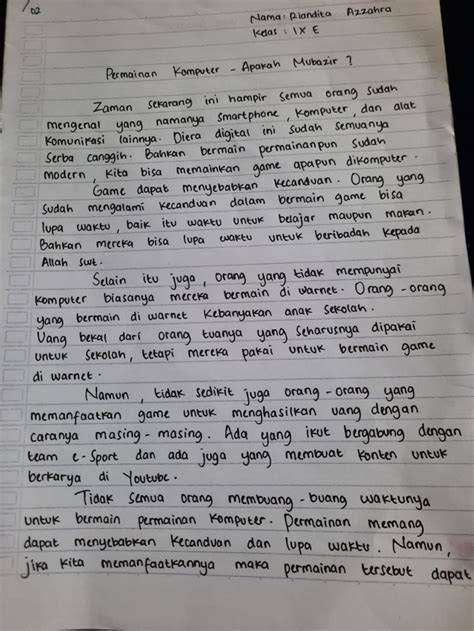 /02
Nama: Riandita Azzahra
Kelas : IX E
Permainan Komputer - Apakah Mubazir ?
Zaman sekarang ini hampir semua orang sudah
mengenal yang namanya smartphone, komputer, dan alat
komunikasi lainnya. Diera digital ini sudah semuanya
serba canggih. Bahkan bermain permainanpun sudah
modern, kita bisa memainkan game apapun dikomputer.
Game dapat menyebabkan kecanduan. Orang yang
sudah mengalami kecanduan dalam bermain game bisa
lupa waktu, baik itu waktu untuk belajar maupun makan.
Bahkan mereka bisa lupa waktu untuk beribadah kepada
Allah swt.
Selain itu juga, orang yang tidak mempunyai
komputer biasanya mereka bermain di warnet. Orang-orang
yang bermain di warnet kebanyakan anak sekolah.
Uang bekal dari orang tuanya yang seharusnya dipakai
untuk sekolah, tetapi mereka pakai untuk bermain game
di warnet.
Namun, tidak sedikit juga orang-orang yang
memanfaatkan game untuk menghasilkan uang dengan
caranya masing-masing. Ada yang ikut bergabung dengan
team e-Sport dan ada juga yang membuat konten untuk
berkarya di Youtube.
Tidak semua orang membuang-buang waktunya
untuk bermain permainan komputer. Permainan memang
dapat menyebabkan kecanduan dan lupa waktu. Namun,
jika kita memanfaatkannya maka permainan tersebut dapat